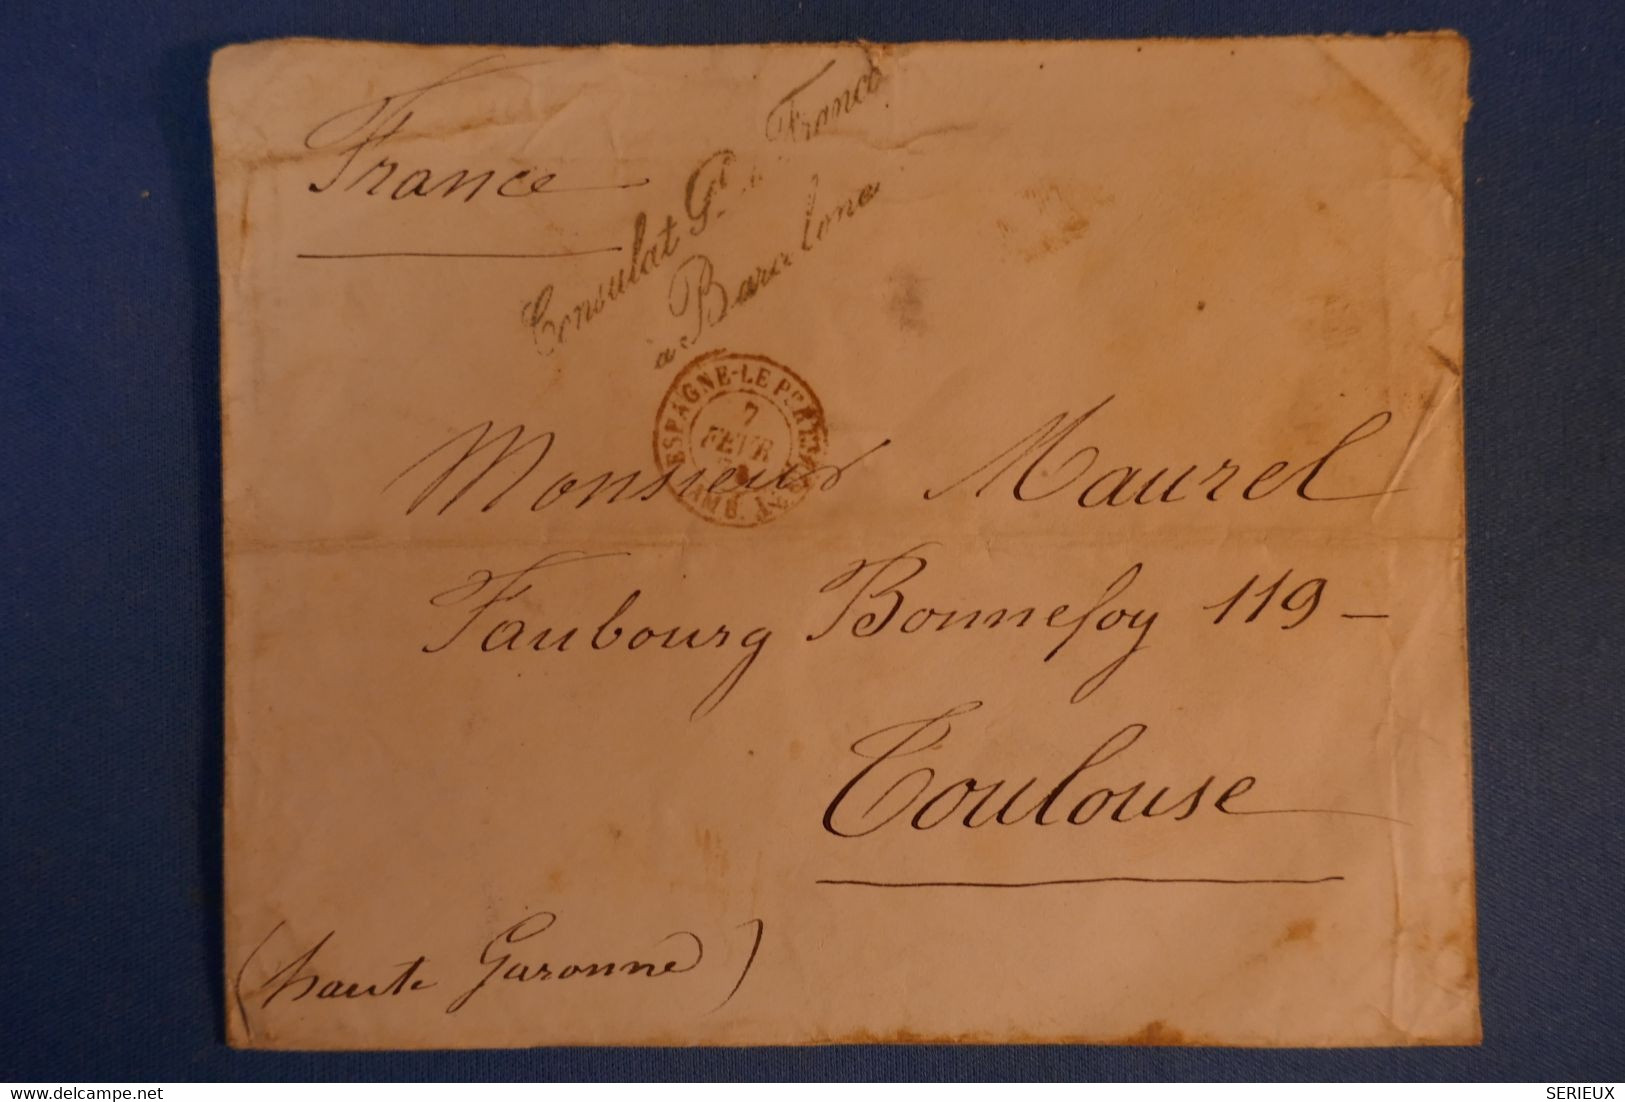 France
Consulat Gal de France
à Barcelone
ESPAGNE-LE PERTHUS
7
FEVR
AMB.
Monsieur Maurel
Faubourg Bonnefoy 119-
Toulouse
(haute Garonne)
www.delcampe.net
SERIEUX